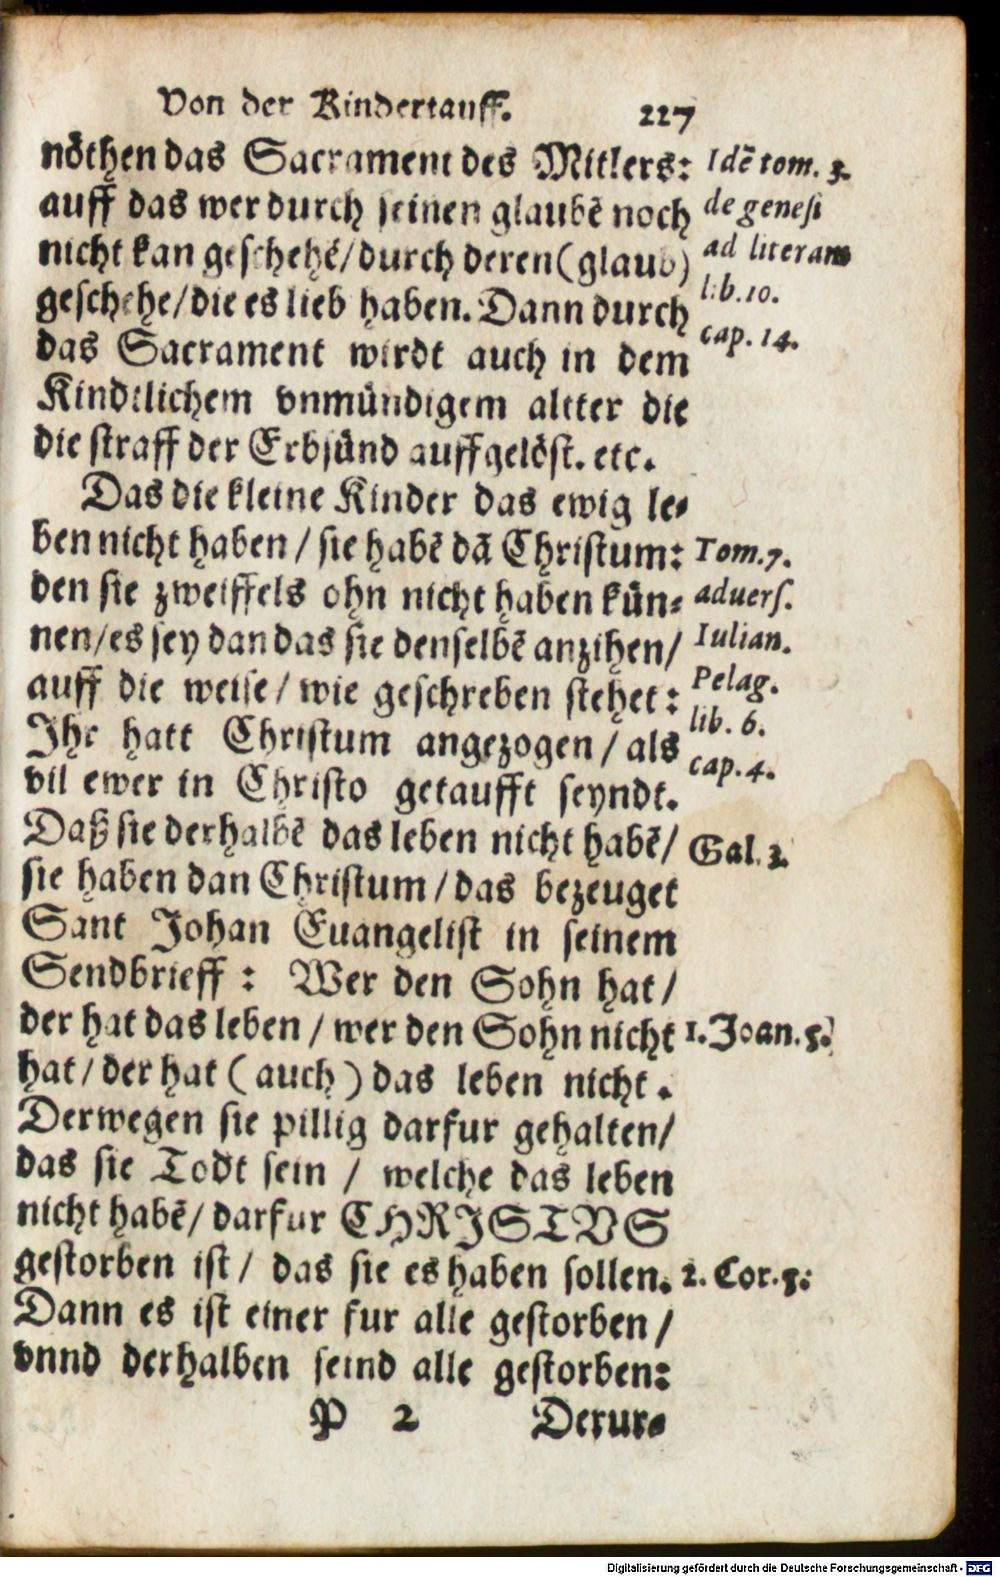 Von der Kindertauff. 227
nöthen das Sacrament des Mitlers:
auff das wer durch seinen glaubē noch
nicht kan geschehē/durch deren(glaub)
geschehe/die es lieb haben. Dann durch
das Sacrament wirdt auch in dem
Kindtlichem vnmündigem altter die
die straff der Erbsünd auffgelöst. etc.
Das die kleine Kinder das ewig le-
ben nicht haben / sie habē dā Christum:
den sie zweiffels ohn nicht haben kün-
nen/es sey dan das sie denselbē anzihen/
auff die weise / wie geschreben stehet:
Ihr hatt Christum angezogen / als
vil ewer in Christo getaufft seyndt.
Daß sie derhalbē das leben nicht habē/
sie haben dan Christum / das bezeuget
Sant Johan Euangelist in seinem
Sendbrieff : Wer den Sohn hat /
der hat das leben / wer den Sohn nicht
hat / der hat ( auch ) das leben nicht .
Derwegen sie pillig darfur gehalten/
das sie Todt sein / welche das leben
nicht habē/ darfur CHRISTVS
gestorben ist / das sie es haben sollen.
Dann es ist einer fur alle gestorben /
vnnd derhalben seind alle gestorben:
P 2 Derur-
Idē tom. 3.
de genesi
ad literam
lib. 10.
cap. 14.
Tom. 7.
aduers.
Iulian.
Pelag.
lib. 6.
cap. 4.
Gal. 3.
1. Joan. 5.
2. Cor. 5.
Digitalisierung gefördert durch die Deutsche Forschungsgemeinschaft - DFG